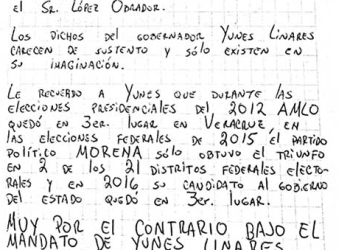 el Sr. López Obrador.
Los dichos del gobernador Yunes Linares
carecen de sustento y sólo existen en
su imaginación.
Le recuerdo a Yunes que durante las
elecciones presidenciales del 2012 AMLO
quedó en 3er. lugar en Veracruz, en
las elecciones federales de 2015 el partido
político MORENA sólo obtuvo el triunfo
en 2 de los 21 distritos federales electo-
rales y en 2016 su candidato al gobierno
del estado quedó en 3er. lugar.
MUY POR EL CONTRARIO BAJO EL
MANDATO DE YUNES LINARES